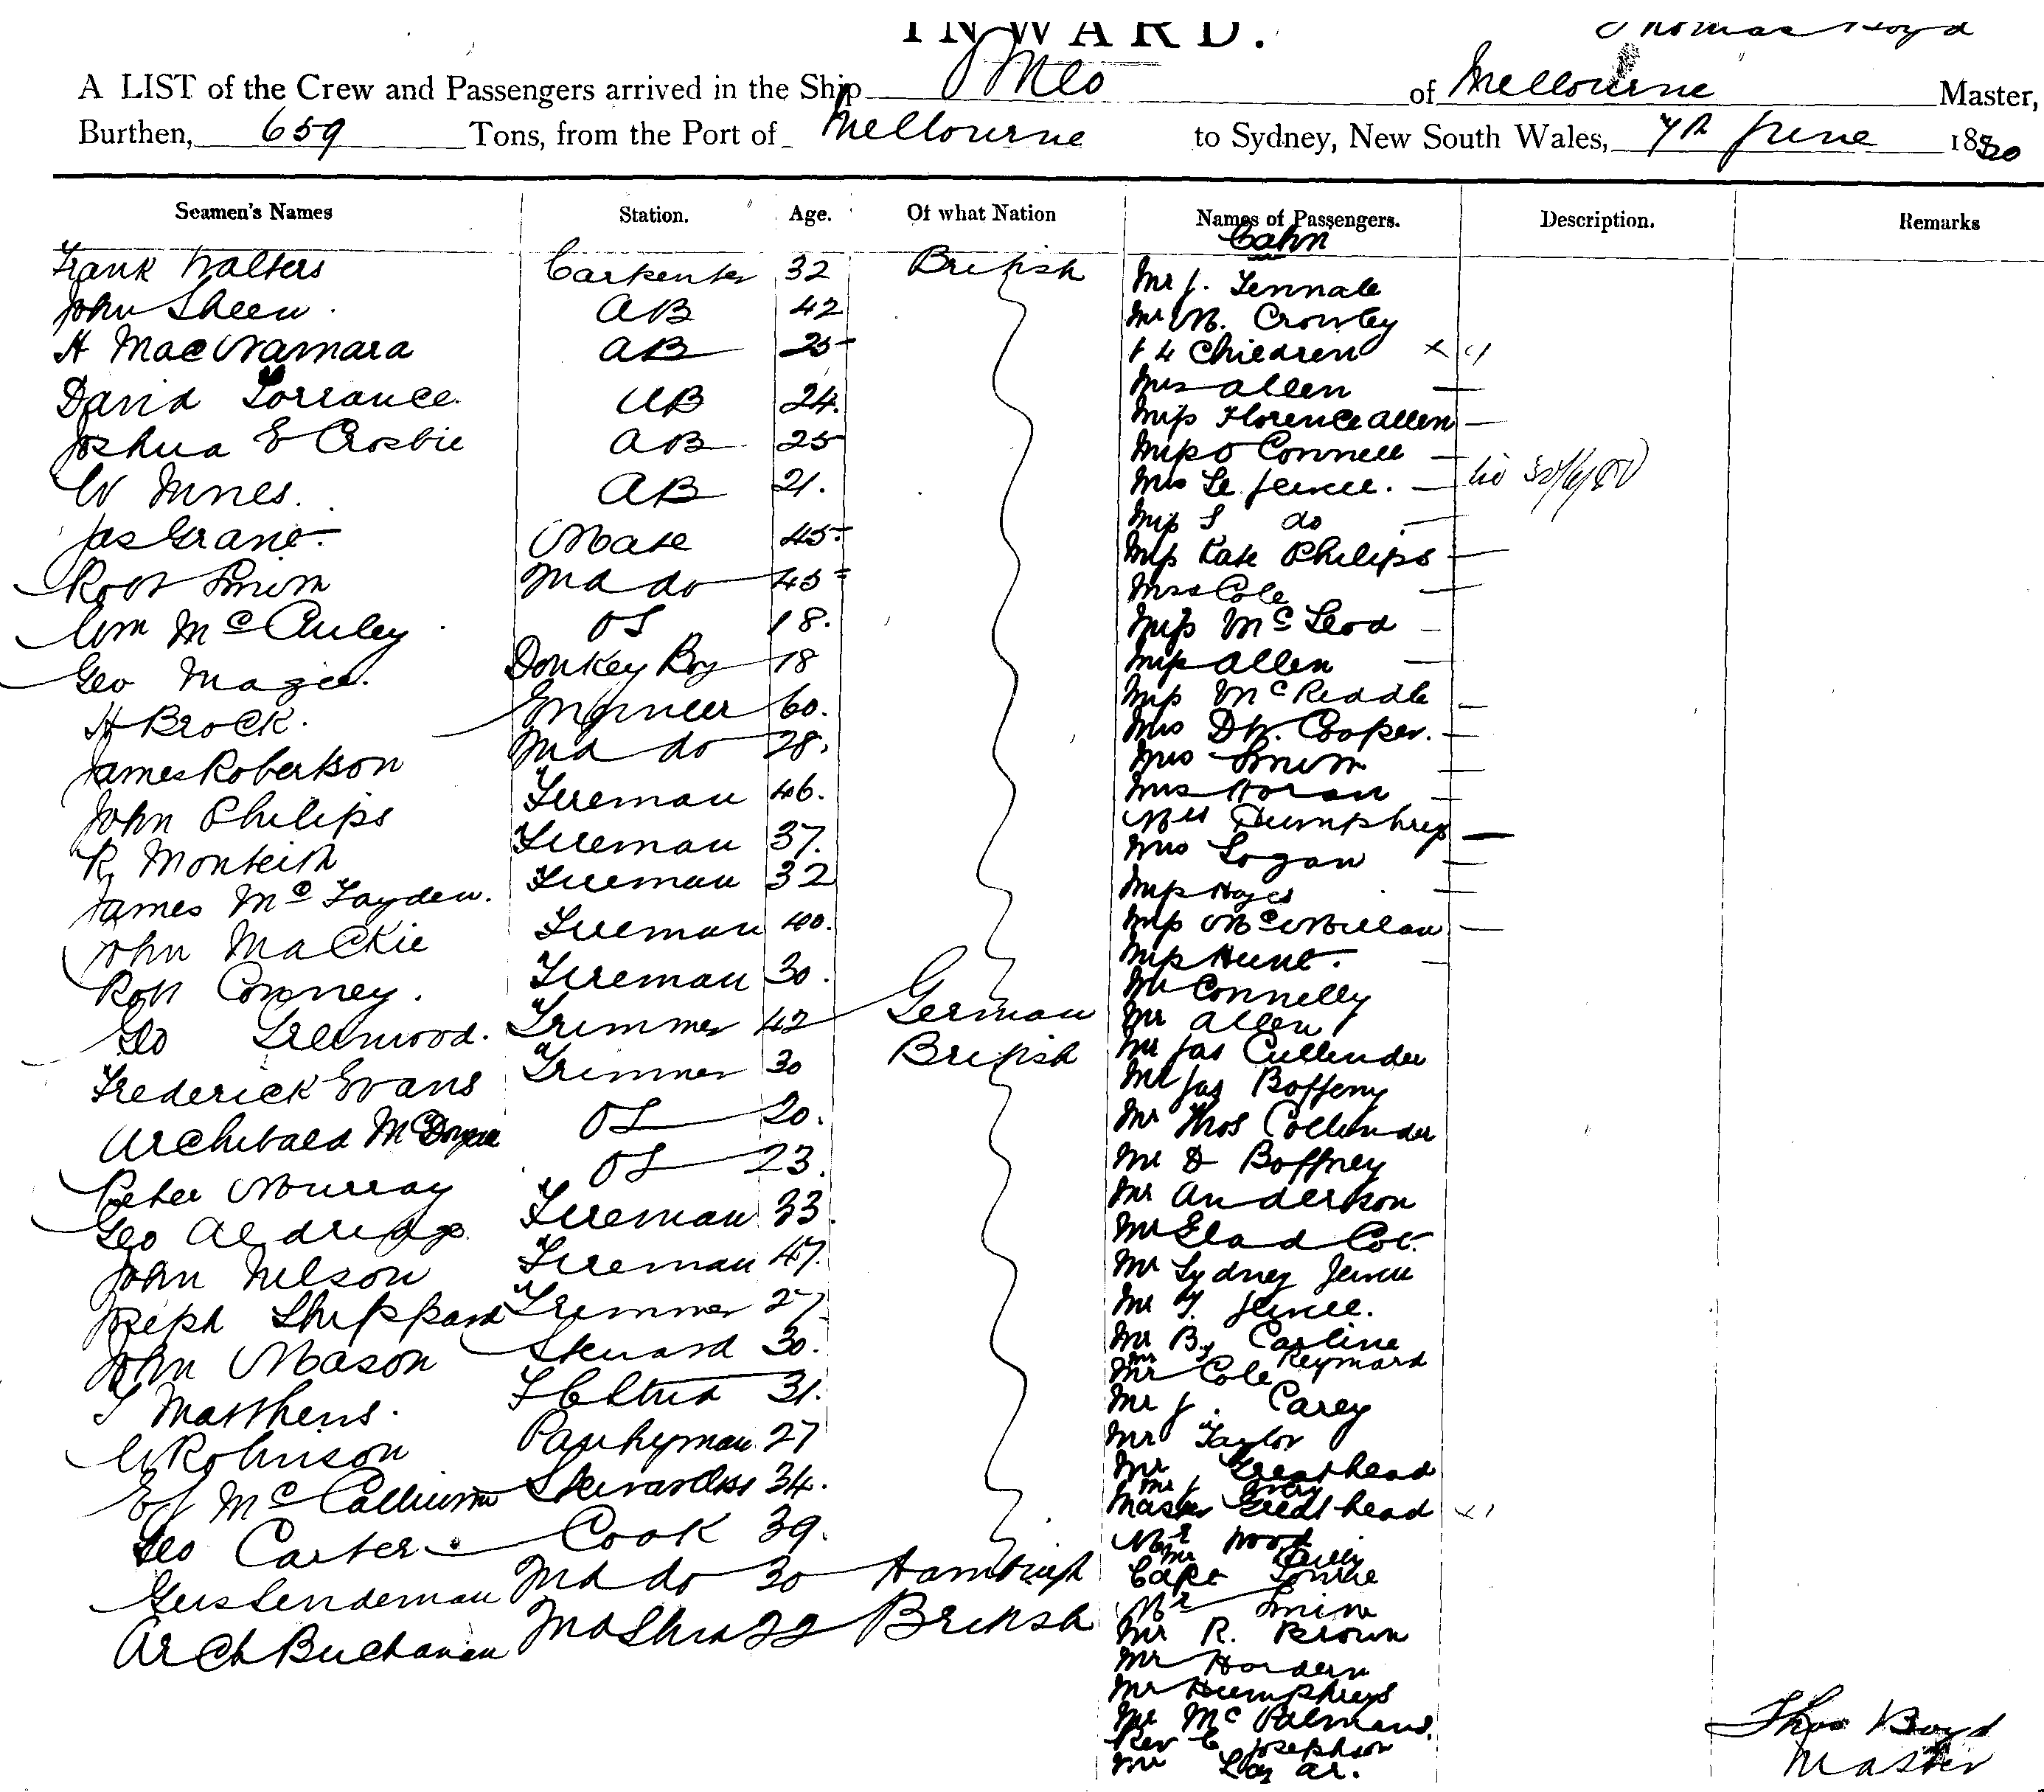 INWARD.
Thomas Boyd
A LIST of the Crew and Passengers arrived in the Ship of Melbourne Master,
Burthen, 659 Tons, from the Port of Melbourne to Sydney, New South Wales, 7th June 1880
Seamen's Names Station. Age. Of what Nation Names of Passengers. Description. Remarks
Cabin
Frank Walters Carpenter 32 British
John Sheen AB 42
H MacNamara AB 25
David Torrance AB 24.
Joshua E Crosbie AB 25
W Innes. AB 21.
Jas Grant Mate 45
Robt Smith 2nd do 45
Wm McAuley OS 18.
Geo Magee. Donkey Boy 18
H Brock. Engineer 60.
James Robertson 2nd do 28.
John Philips Fireman 46.
R. Monteith Fireman 37.
James McFayden. Fireman 32
John Mackie Fireman 40.
Robt Conney. Fireman 30.
Geo Greenwood. Trimmer 42 German
Frederick Evans Trimmer 30 British
Archibald OS 20.
Peter Murray OS 23.
Geo Aldridge Fireman 33.
John Nelson Fireman 47.
Joseph Sheppard Trimmer 27
John Mason Steward 30.
T Matthews. 31.
W Robinson Pantryman 27
McCallum Stewardess 34.
Geo Carter Cook 39.
Gus Lendeman 2nd do 30 Hamburgh
Arch Buchanan 22 British
Mr J. Tennale
Mr M. Crowley
& 4 Children x 4
Mrs Allen
Miss Florence Allen
Miss O Connell
Mrs Le
Miss S do
Miss Kate Philips
Mrs Cole
Miss McLeod
Miss Allen
Miss McReddle
Mrs DW. Cooper.
Mrs Smith
Mrs Horan
Mrs Humphreys
Mrs Logan
Miss Hayes
Miss McMillan
Miss Hunt.
Mr Connelly
Mr Allen
Mr Jas Cullender
Mr Jas Boffeny
Mr Thos Collender
Mr D Boffney
Mr Anderson
Mr
Mr Sydney
Mr T.
Mr B. Carline
Mr Reymard
Mr Cole
Mr J. Carey
Mr Taylor
Mr Greathead
Mr J
Master Greathead x 1
Mr Wood
Mr Reilly
Capt
Mr Smith
Mr R. Brown
Mr Hordern
Mr Humphreys
Mr Mc
Rev C Josephson
Mr
Thos Boyd
Master